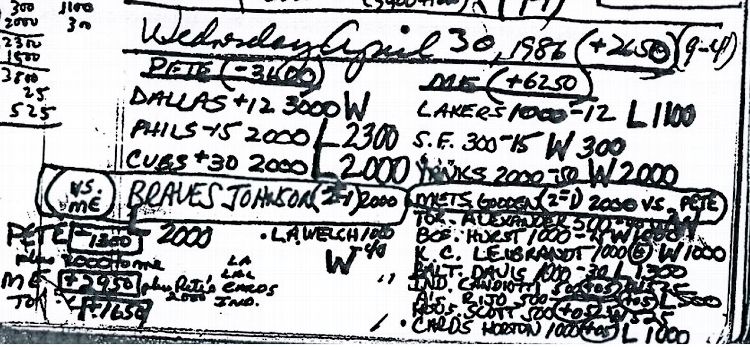 300 1100
2000 300
2300
1500
3800
25
525
Wednesday April 30, 1986 (+2650) (9-4)
PETE (-3600)
DALLAS +12 3000 W
PHILS -15 2000 L 2300
CUBS +30 2000 L 2000
VS. ME
BRAVES JOHNSON (2-1) 2000
L 2000
PETE -1300
2000 to me
ME +2950 plus Pete's 2000
+1650
LA
LAL
CARDS
IND.
ME (+6250)
LAKERS 1000 -12 L 1100
S.F. 300 -15 W 300
YANKS 2000 -50 W 2000
METS GOODEN (2-1) 2000 VS. PETE
TOR. ALEXANDER 500
BOS. HURST 1000
K.C. LEIBRANDT 1000 W 1000
BALT. DAVIS 1000 -30 L 1300
IND. CANDIOTTI 500 +05
A'S RIJO 500 L 500
SCOTT 500 +05 W 525
CARDS HORTON 1000 +05 L 1000
L.A. WELCH 1000 -40
W